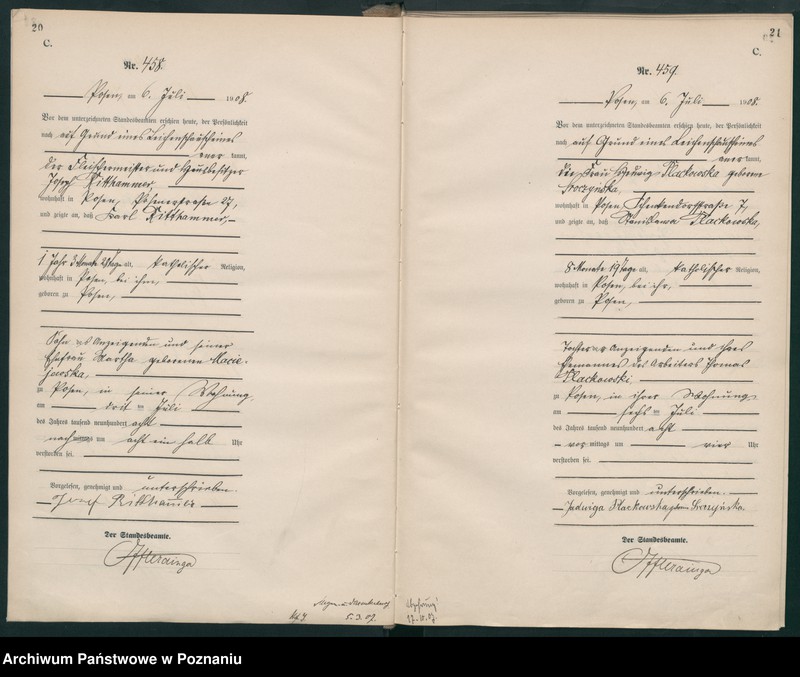 20
C.
Nr. 458.
Posen, am 6. Juli 1908.
Vor dem unterzeichneten Standesbeamten erschien heute, der Persönlichkeit
nach auf Grund eines Leichenschauscheines
kannt,
der Fleischermeister und Hausbesitzer
Joseph Ritthammer,
wohnhaft in Posen,
und zeigte an, daß Karl Ritthammer,
1 Jahr 3 Monate alt, katholischer Religion,
wohnhaft in Posen, bei ihm,
geboren zu Posen,
Sohn des Anzeigenden und seiner
Ehefrau Martha geborenen Macie-
jewska,
zu Posen, in seiner Wohnung,
am drei ten Juli
des Jahres tausend neunhundert acht
nachmittags um acht ein halb Uhr
verstorben sei.
Vorgelesen, genehmigt und unterschrieben.
Josef Ritthamer
Der Standesbeamte.
5.3.09.
21
C.
Nr. 459.
Posen, am 6. Juli 1908.
Vor dem unterzeichneten Standesbeamten erschien heute, der Persönlichkeit
nach auf Grund eines Leichenschauscheines
kannt,
die Frau Hedwig Klackowska geborne
Sroczyńska,
wohnhaft in Posen Schenkendorfstraße 7,
und zeigte an, daß Stanislawa Klackowska,
8 Monate 19 Tage alt, katholischer Religion,
wohnhaft in Posen, bei ihr,
geboren zu Posen,
Tochter der Anzeigenden und ihres
Ehemannes des Arbeiters Thomas
Klackowski,
zu Posen, in ihrer Wohnung,
am sechs ten Juli
des Jahres tausend neunhundert acht
vormittags um vier Uhr
verstorben sei.
Vorgelesen, genehmigt und unterschrieben.
Jadwiga Klackowska Sroczyńska
Der Standesbeamte.
Archiwum Państwowe w Poznaniu